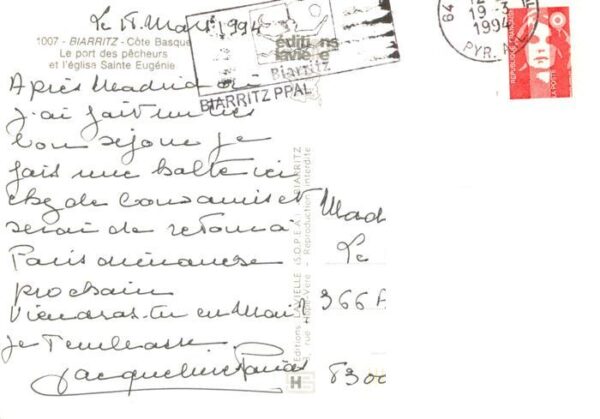 Le 18 Mars 1994
1007 - BIARRITZ - Côte Basque
Le port des pêcheurs
et l'église Sainte Eugénie
éditions
lavielle
Biarritz
BIARRITZ PPAL
64
19-3
1994
PYR. ATL
REPUBLIQUE FRANÇAISE
LA POSTE
Après Madrid où
j'ai fait un très
bon séjour je
fais une halte ici
chez de bons amis et
serai de retour à
Paris dimanche
prochain
Viendras-tu en Mai?
Je t'embrasse
Jacqueline
Editions LAVIELLE (S.O.P.E.A.) BIARRITZ
Reproduction interdite
H
Mad
Le
366 A
8300